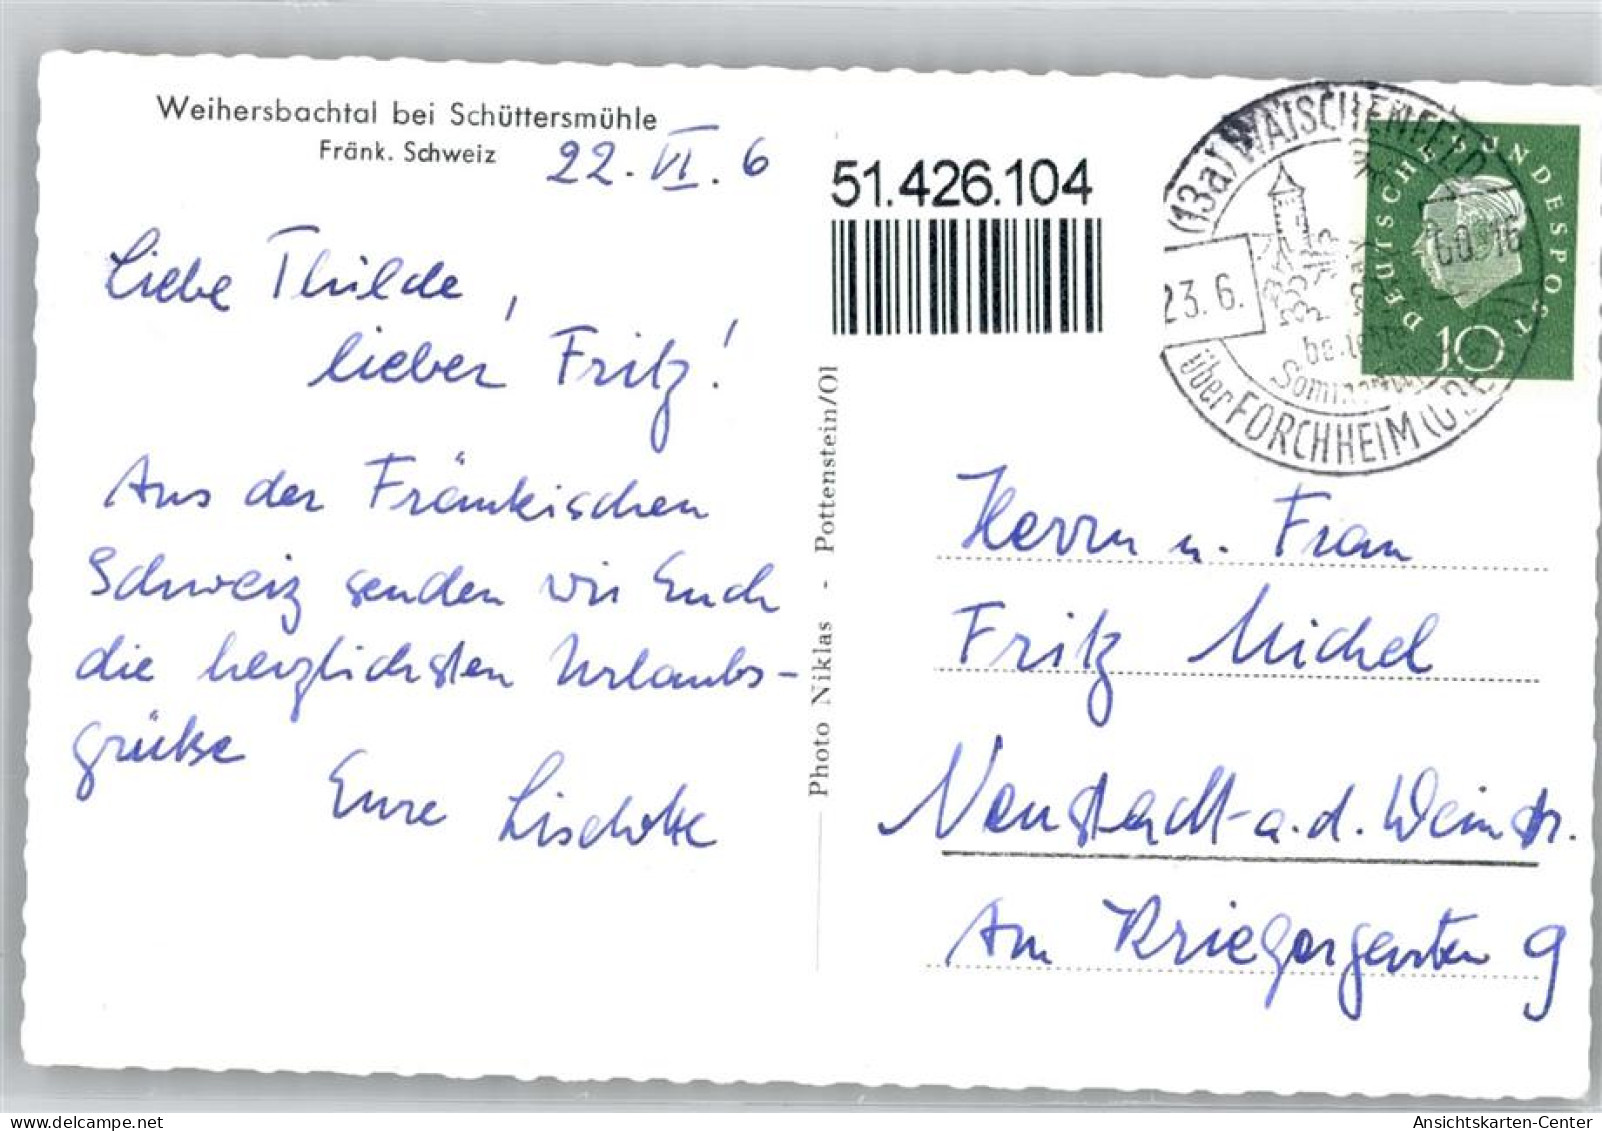 Weihersbachtal bei Schüttersmühle
Fränk. Schweiz
22. VI. 6
Liebe Thilde,
lieber Fritz!
Aus der Fränkischen
Schweiz senden wir Euch
die herzlichsten Urlaubs-
grüße
Eure Liselotte
Photo Niklas - Pottenstein/Ol
51.426.104
(13a) WAISCHENFELD
23.6. 60.16
über FORCHHEIM
DEUTSCHE BUNDESPOST
10
Herrn u. Frau
Fritz Michel
Neustadt-a.d. Weinstr.
Am Kriegergarten 9
Ansichtskarten-Center